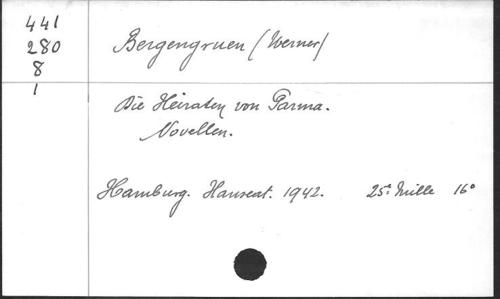 441
280
8
1
Bergengruen (Werner)
Die Heiraten von Parma.
Novellen.
Hamburg. Hanseat. 1942. 25ᵉ mille 16°